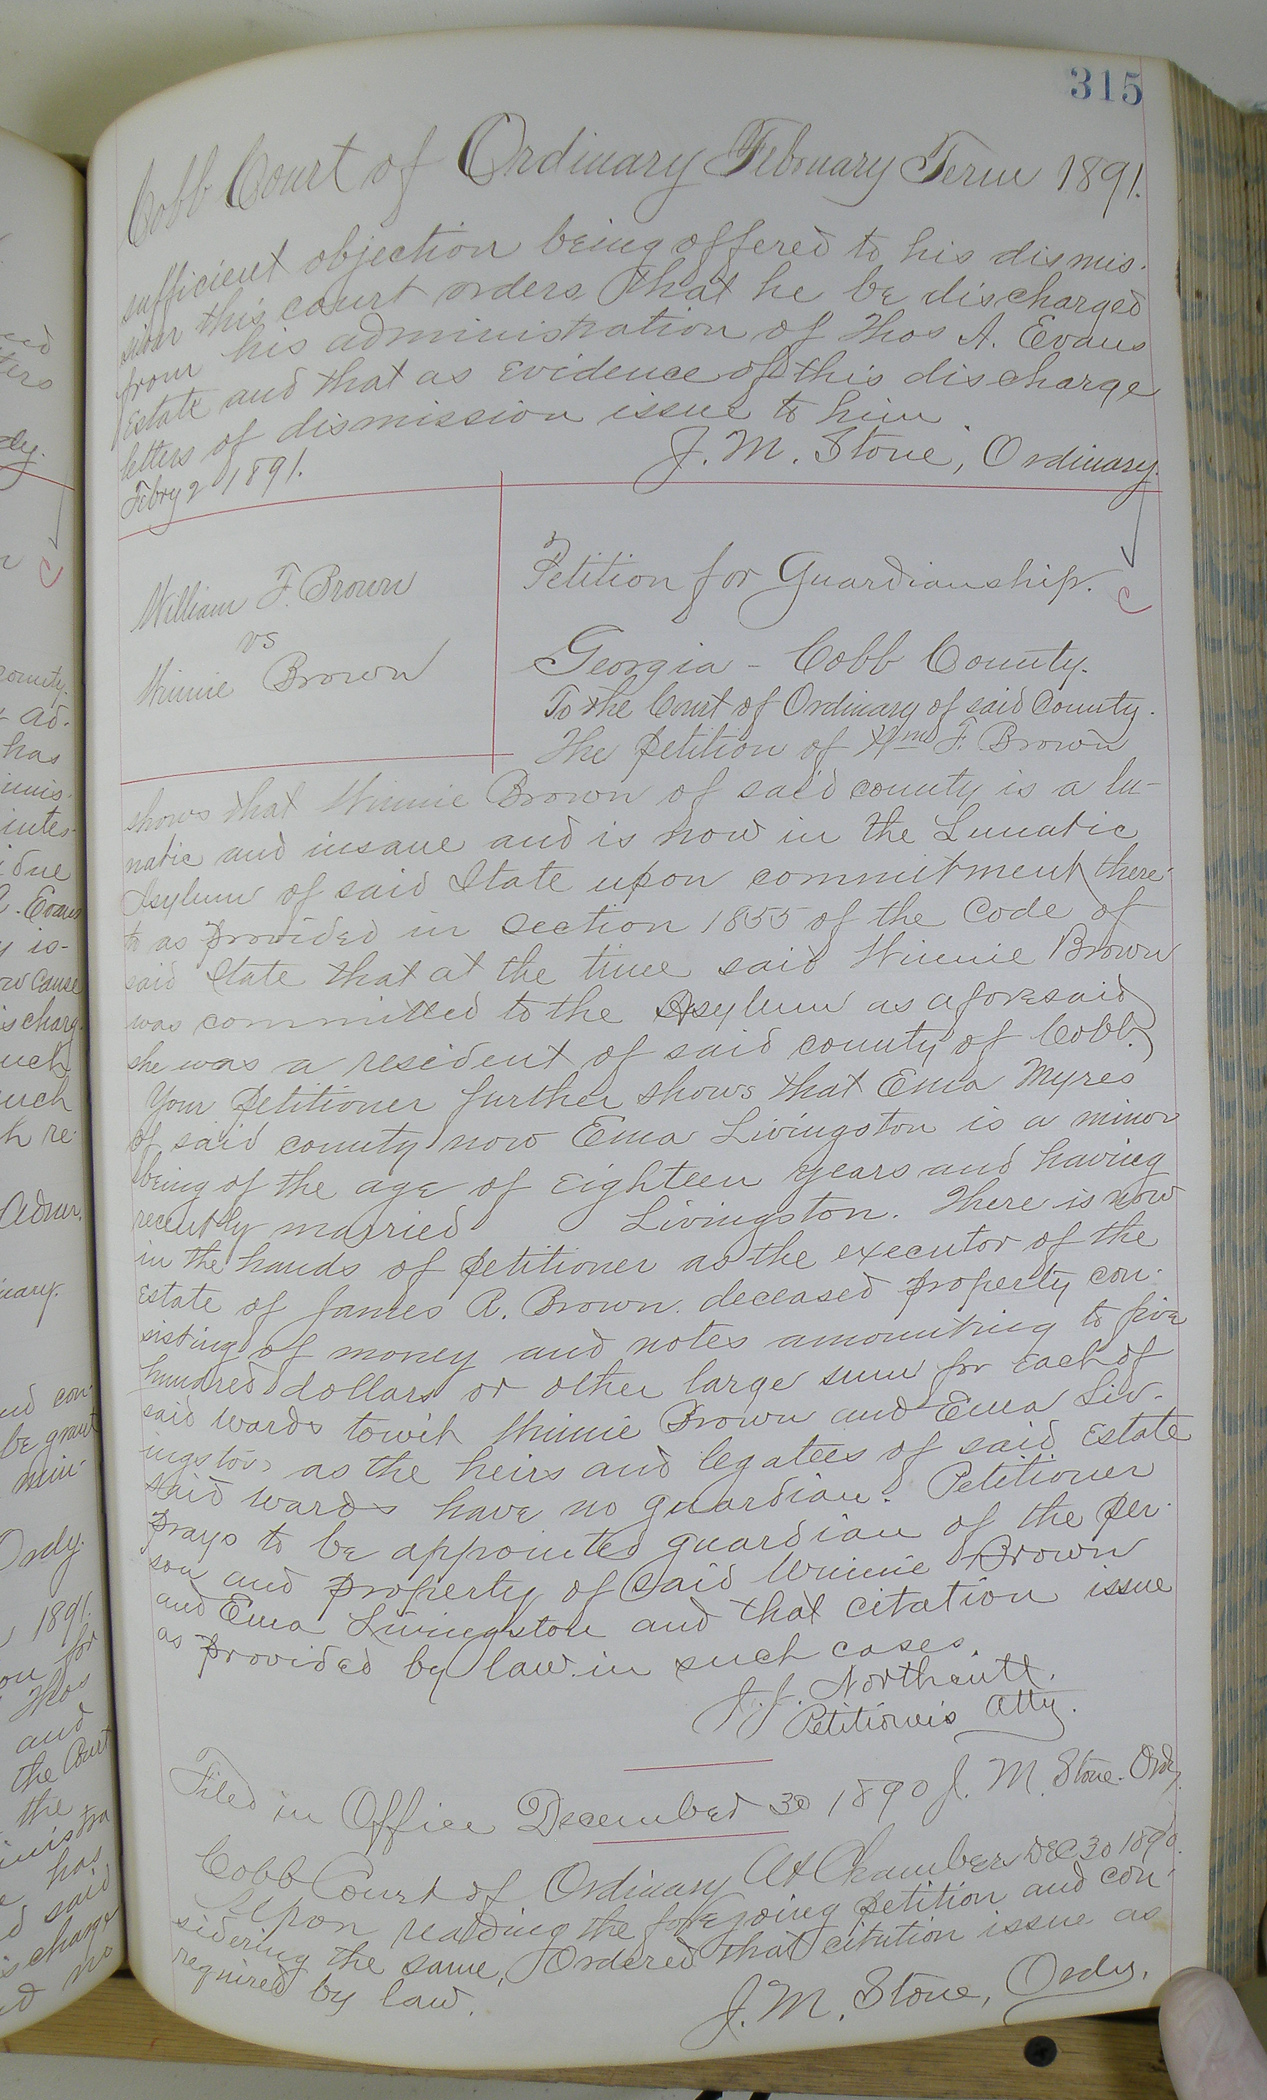 315
Cobb Court of Ordinary February Term 1891.
sufficient objection being offered to his dismis-
sion this court orders that he be discharged
from his administration of Thos A. Evans
Estate and that as evidence of this discharge
letters of dismission issue to him
Febry 2 1891.
J. M. Stone, Ordinary.
William F. Brown
vs
Winnie Brown
Petition for Guardianship.
Georgia - Cobb County.
To the Court of Ordinary of said County.
The petition of Wm F. Brown
shows that Winnie Brown of said county is a lu-
natic and insane and is now in the Lunatic
Asylum of said State upon commitment there-
to as provided in section 1855 of the Code of
said State that at the time said Winnie Brown
was committed to the Asylum as aforesaid
she was a resident of said county of Cobb.
Your petitioner further shows that Ema Myres
of said county now Ema Livingston is a minor
being of the age of eighteen years and having
recently married Livingston. There is now
in the hands of petitioner as the executor of the
Estate of James R. Brown deceased property con-
sisting of money and notes amounting to five
hundred dollars or other large sum for each of
said wards towit Winnie Brown and Ema Liv-
ingston as the heirs and legatees of said Estate
said wards have no guardian. Petitioner
prays to be appointed guardian of the per-
son and property of said Winnie Brown
and Ema Livingston and that citation issue
as provided by law in such cases.
J. J. Northcutt.
Petitioners Atty.
Filed in Office December 30 1890 J. M. Stone. Ordy.
Cobb Court of Ordinary At Chambers Dec 30 1890.
Upon reading the foregoing petition and con-
sidering the same, Ordered that citation issue as
required by law.
J. M. Stone, Ordy.